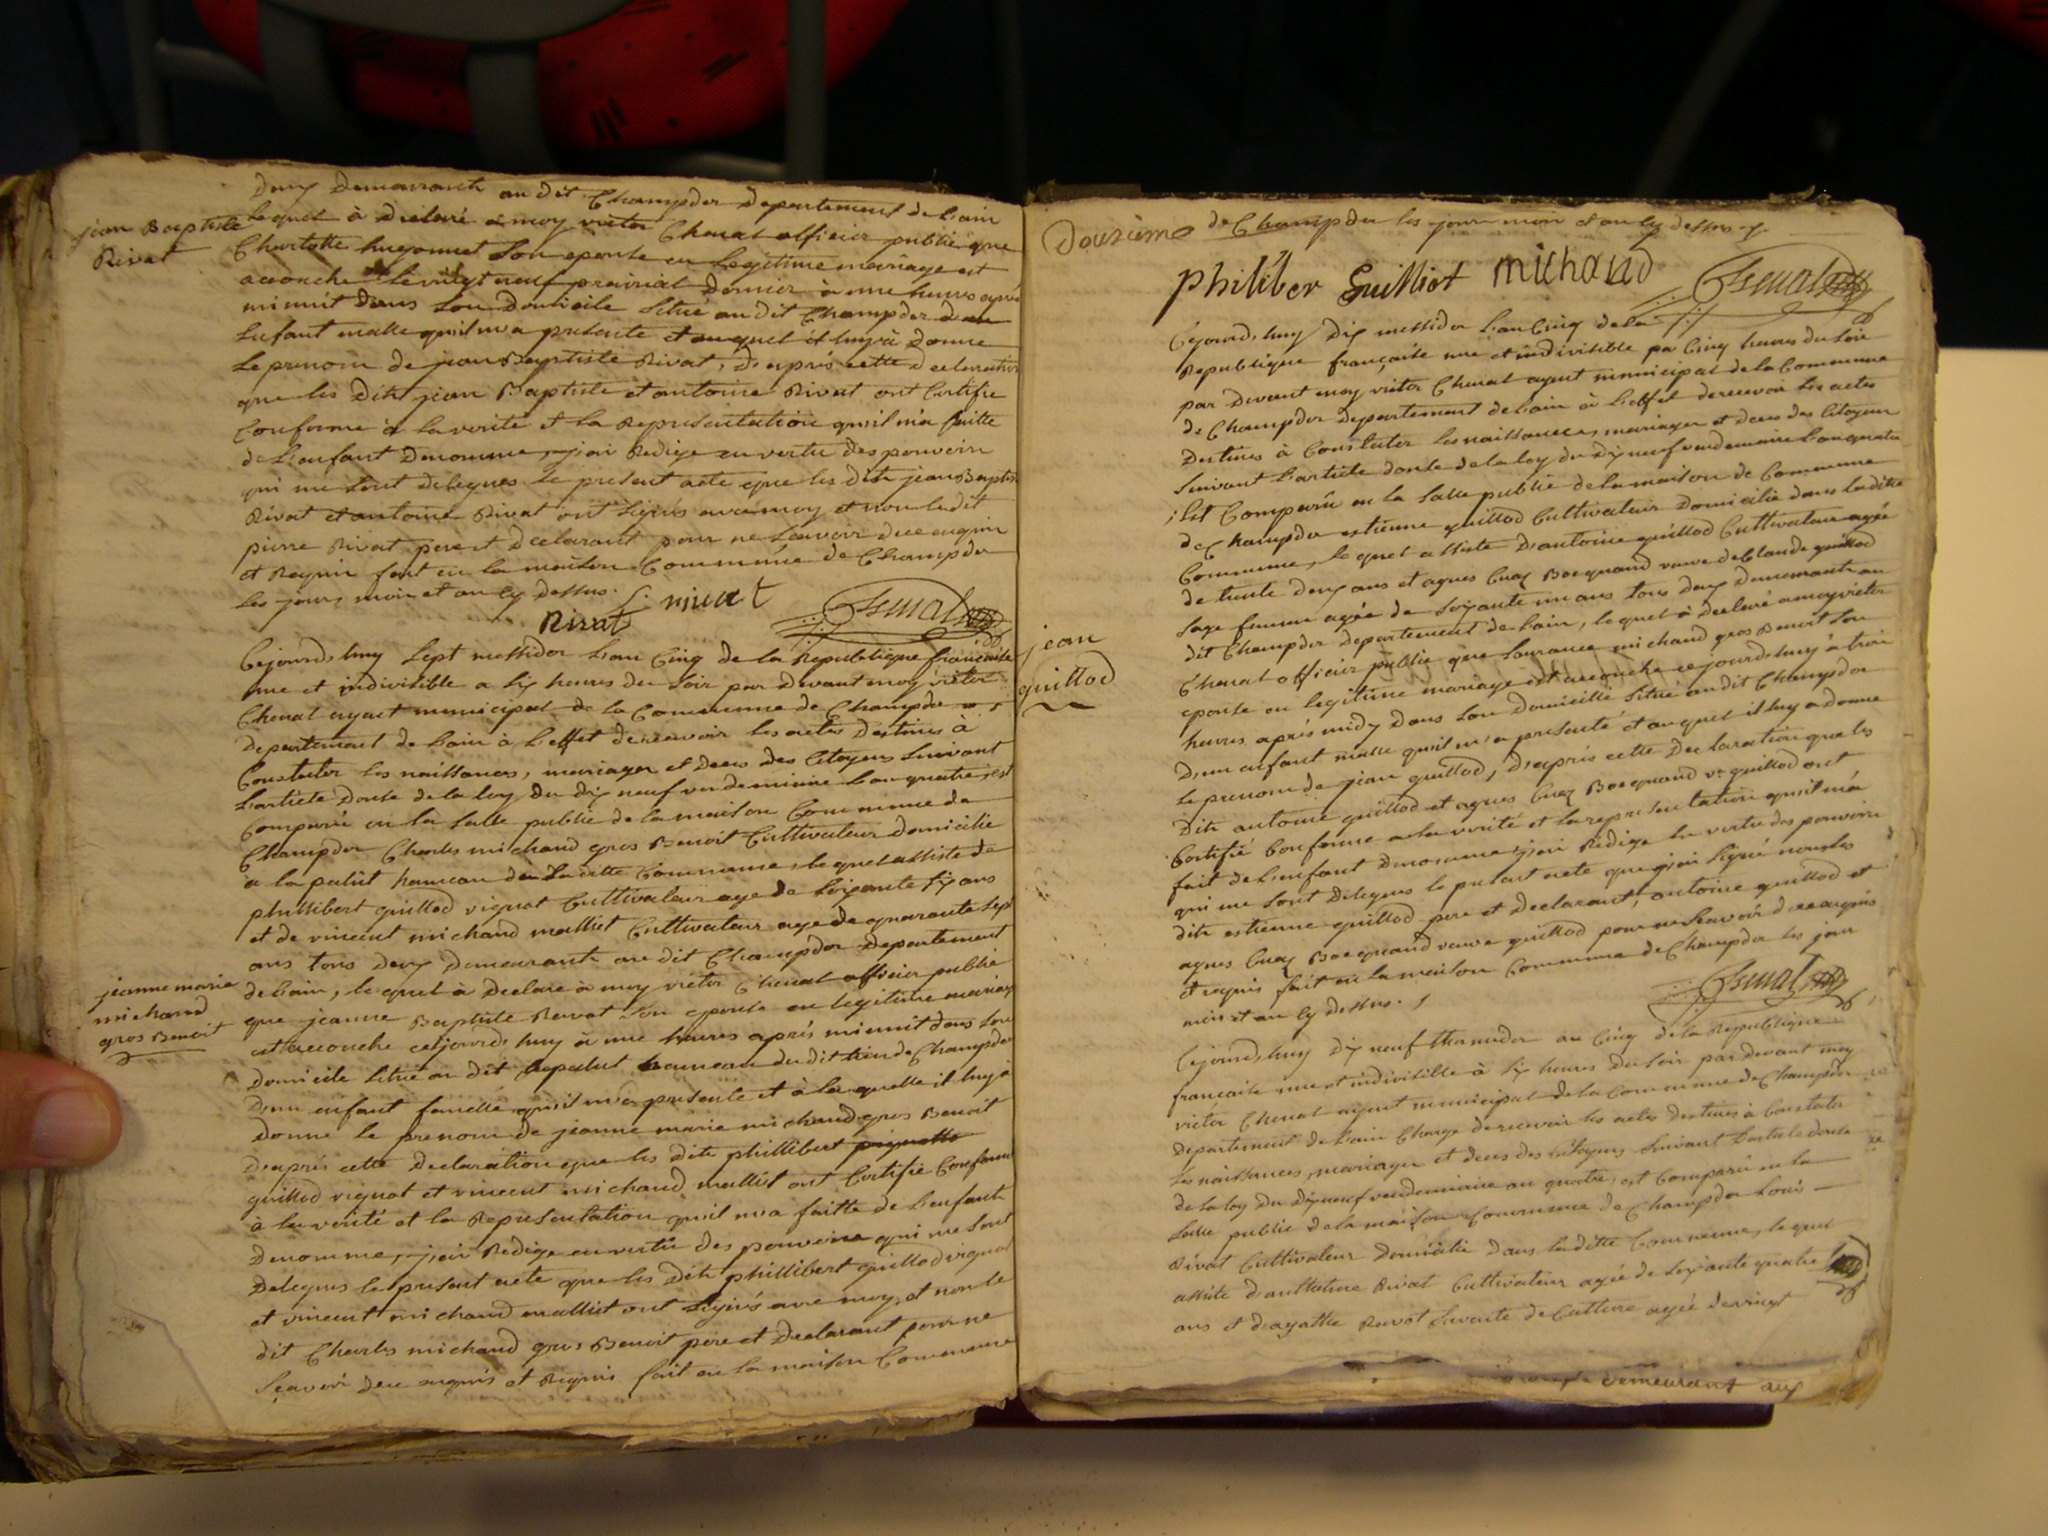 deux demeurants au dit Champdor departement de Lain
jean Baptiste
Rivat
Lequel à declaré a moy victor Chenal officier public que
Charlotte hugonnet Son epouse en Legitime mariage est
accouche Le vingt neuf prairial dernier à une heure après
minuit dans Son domicile Situé au dit Champdor d'un
Enfant malle qu'il m'a présenté et auquel il luy à donné
Le prenom de jean Baptiste Rivat, d'après cette declaration
que les dits jean Baptiste et antoine Rivat ont Certifié
Conforme à la verité et la Representation qu'il m'a faitte
de L'enfant denommé, j'ai Redigé en vertu des pouvoirs
qui me Sont delegués le present acte que les dits jean Baptiste
Rivat et antoine Rivat ont Signés avec moy et non le dit
pierre Rivat pere et declarant pour ne Scavoir de ce enquis
et Requis fait en la maison Commune de Champdor
les jours mois et an cy dessus.
Rivat
Cejourd,huy Sept messidor L'an Cinq de la Republique francaise
une et indivisible a Six heures du Soir par devant moy victor
Chenal agent municipal de la Commune de Champdor
departement de Lain à L'effet de recevoir les actes destinés à
Constater les naissances, mariages et deces des Citoyens Suivant
L'article douse de la loy du dix neuf vendemiaire L'an quatre, est
Comparu en la Salle public de la maison Commune de
Champdor Charles michaud gros Benoit Cultivateur domicilié
a la palut hameau de La ditte Commune, lequel assisté de
phillibert guillod vignat Cultivateur agé de Soixante Six ans
et de vincent michaud malliet Cultivateur age de quarante Sept
ans tous deux demeurants au dit Champdor departement
jeanne marie
michaud
gros Benoit
de Lain, lequel à declaré à moy victor Chenal officier public
que jeanne Baptiste Ravat Son epouse en legitime mariage
est accouche cejourd, huy à une heures après minuit dans Son
domicile Situé au dit Lapalut hameau du dit lieu de Champdor
d'un enfant femelle qu'il m'a presenté et à laquelle il luy a
donné le prenom de jeanne marie michaud gros Benoit
d'après cette declaration que les dits phillibert
guillod vignat et vincent michaud malliet ont Certifié Conforme
à la verité et la Representation qu'il m'a faitte de L'enfant
denommé, j'ai Redigé en vertu des pouvoirs qui me Sont
delegués le present acte que les dits phillibert guillod vignat
et vincent michaud malliet ont Signés avec moy, et non le
dit Charles michaud gros Benoit pere et declarant pour ne
Scavoir de ce enquis et Requis fait en la maison Commune
Dousième
de Champdor les jours mois et an cy dessus.
Philiber Guilliot michaud
Cejourd,huy dix messidor L'an Cinq de la
Republique française une et indivisible a Cinq heures du Soir
par devant moy victor Chenal agent municipal de la Commune
de Champdor departement de Lain à L'effet de recevoir les actes
destinés à Constater les naissances, mariages et deces des Citoyens
Suivant L'article douse de la loy du dix neuf vendemiaire L'an quatre
est Comparû en la Salle public de la maison de Commune
de Champdor estienne guillod Cultivateur domicilié dans la ditte
Commune, le quel assisté d'antoine guillod Cultivateur agé
de trente deux ans et agnes Bocquand veuve de Claude guillod
Sage femme agée de Soixante un ans tous deux demeurants au
dit Champdor departement de Lain, lequel à declaré a moy victor
jean
guillod
Chenal officier public que Laurance michaud gros Benoit Son
epouse en legitime mariage est accouche cejourd,huy à trois
heures après midy dans Son domicille Situé au dit Champdor
d'un enfant malle qu'il m'a présenté et auquel il luy a donné
le prenom de jean guillod, d'après cette declaration que les
dits antoine guillod et agnes Bocquand ve guillod ont
Certifié Conforme a la verité et la representation qu'il m'a
fait de L'enfant denommé, j'ai Rédigé en vertu des pouvoirs
qui me Sont delegués le present acte que j'ai Signé non les
dits estienne guillod pere et declarant, antoine guillod et
agnes Bocquand veuve guillod pour ne Scavoir de ce enquis
et requis fait en la maison Commune de Champdor les jour
mois et an cy dessus.
Cejourd,huy dix neuf thermidor an Cinq de la Republique
francaise une et indivisible à Six heures du Soir par devant moy
victor Chenal agent municipal de la Commune de Champdor
departement de Lain Chargé de recevoir les actes destinés à Constater
Les naissances, mariages et deces des Citoyens Suivant L'article douse
de la loy du dix neuf vendemiaire an quatre, est Comparû en la
Salle public de la maison Commune de Champdor Louis
Rivat Cultivateur domicilié dans la ditte Commune, le quel
assisté d'anthelme Rivat Cultivateur agée de Soixante quatre
ans et d'agathe Ravot de Culture agée de vingt
demeurant aux